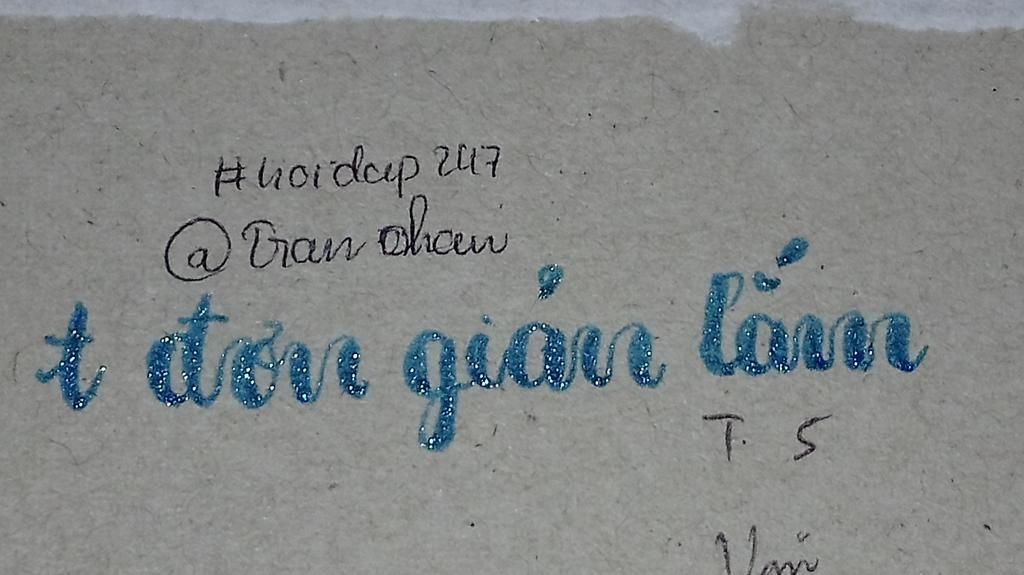 #hoidap247
@Tran
t đơn giản lắm
T. 5